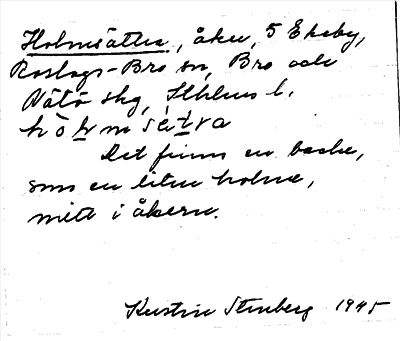 Holmsättra, åker, 5 Ekeby,
Roslags-Bro sn, Bro och
Vätö skg, Sthlms l.
hòlmsä̀tra
Det finns en backe,
som en liten holme,
mitt i åkern.
Kerstin Stenberg 1945